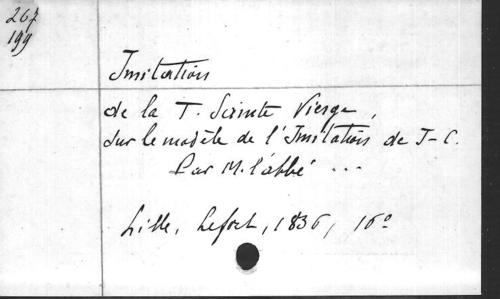 267
199
Imitation
de la T. Sainte Vierge,
sur le modèle de l'Imitation de J-C.
Par M. l'abbé ...
Lille, Lefort, 1836, 16º